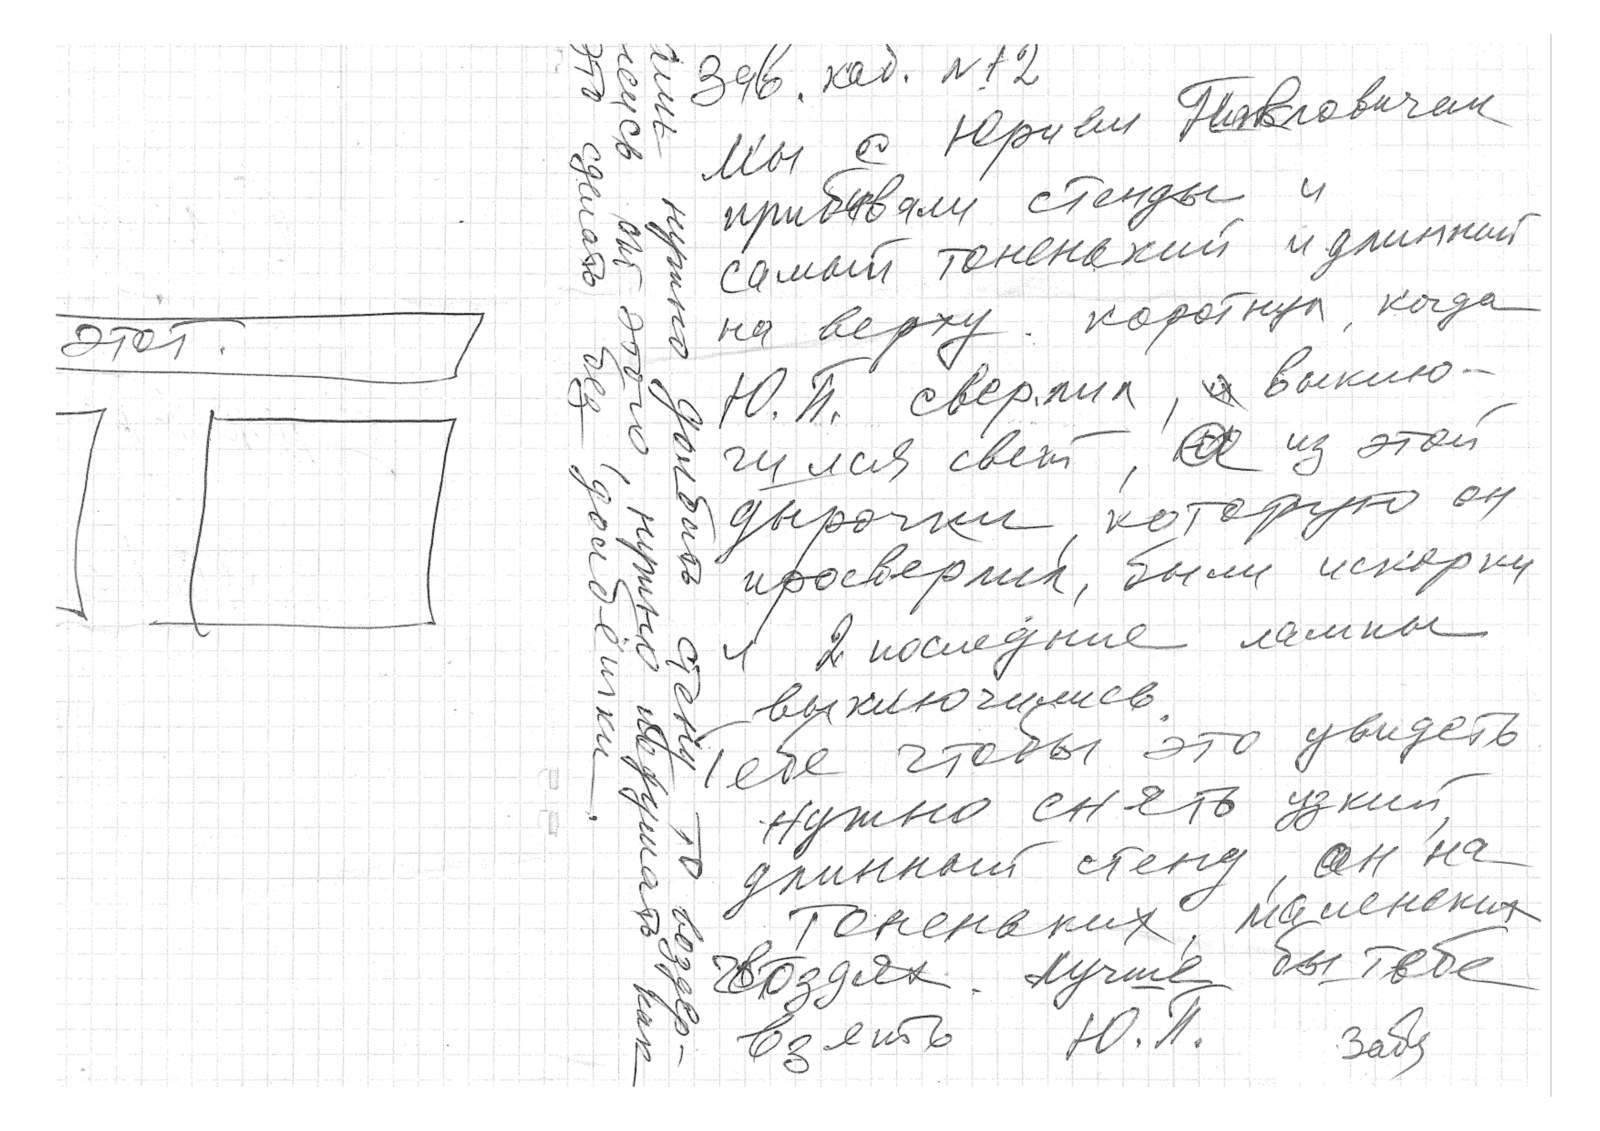 Зав. каб. №12
Мы с Юрием Павловичем
прибивали стенды и
самый тоненький и длинный
на верху. коротнул, когда
Ю.П. сверлил, выклю-
чился свет, из этой
дырочки, которую он
просверлил, были искорки
и 2 последние лампы
выключились.
Тебе чтобы это увидеть
нужно снять узкий,
длинный стенд, он на
тоненьких, маленьких
гвоздях. Лучше бы тебе
взять Ю.П.
нужно долбить стену то воздер-
от этого, нужно подумать как
это сделать без долбёжки.
этот.